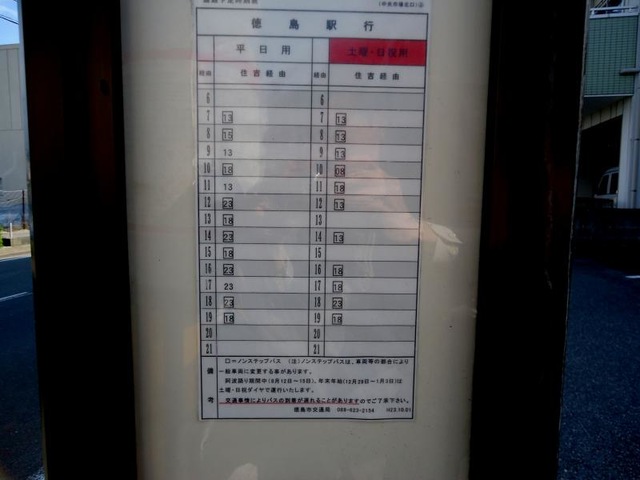 徳島駅行
平日用 土曜・日祝用
経由 住吉経由 経由 住吉経由
6 6
7 13 7 13
8 15 8 13
9 13 9 13
10 18 10 08
11 13 11 18
12 23 12 13
13 18 13
14 23 14 13
15 18 15
16 23 16 18
17 23 17 18
18 23 18 23
19 18 19 18
20 20
21 21
備考
□=ノンステップバス (注)ノンステップバスは、車両等の都合により
一般車両に変更する事があります。
阿波踊り期間中(8月12日~15日)、年末年始(12月29日~1月3日)は
土曜・日祝ダイヤで運行いたします。
交通事情によりバスの到着が遅れることがありますのでご了承下さい。
徳島市交通局 088-623-2154 H23.10.01